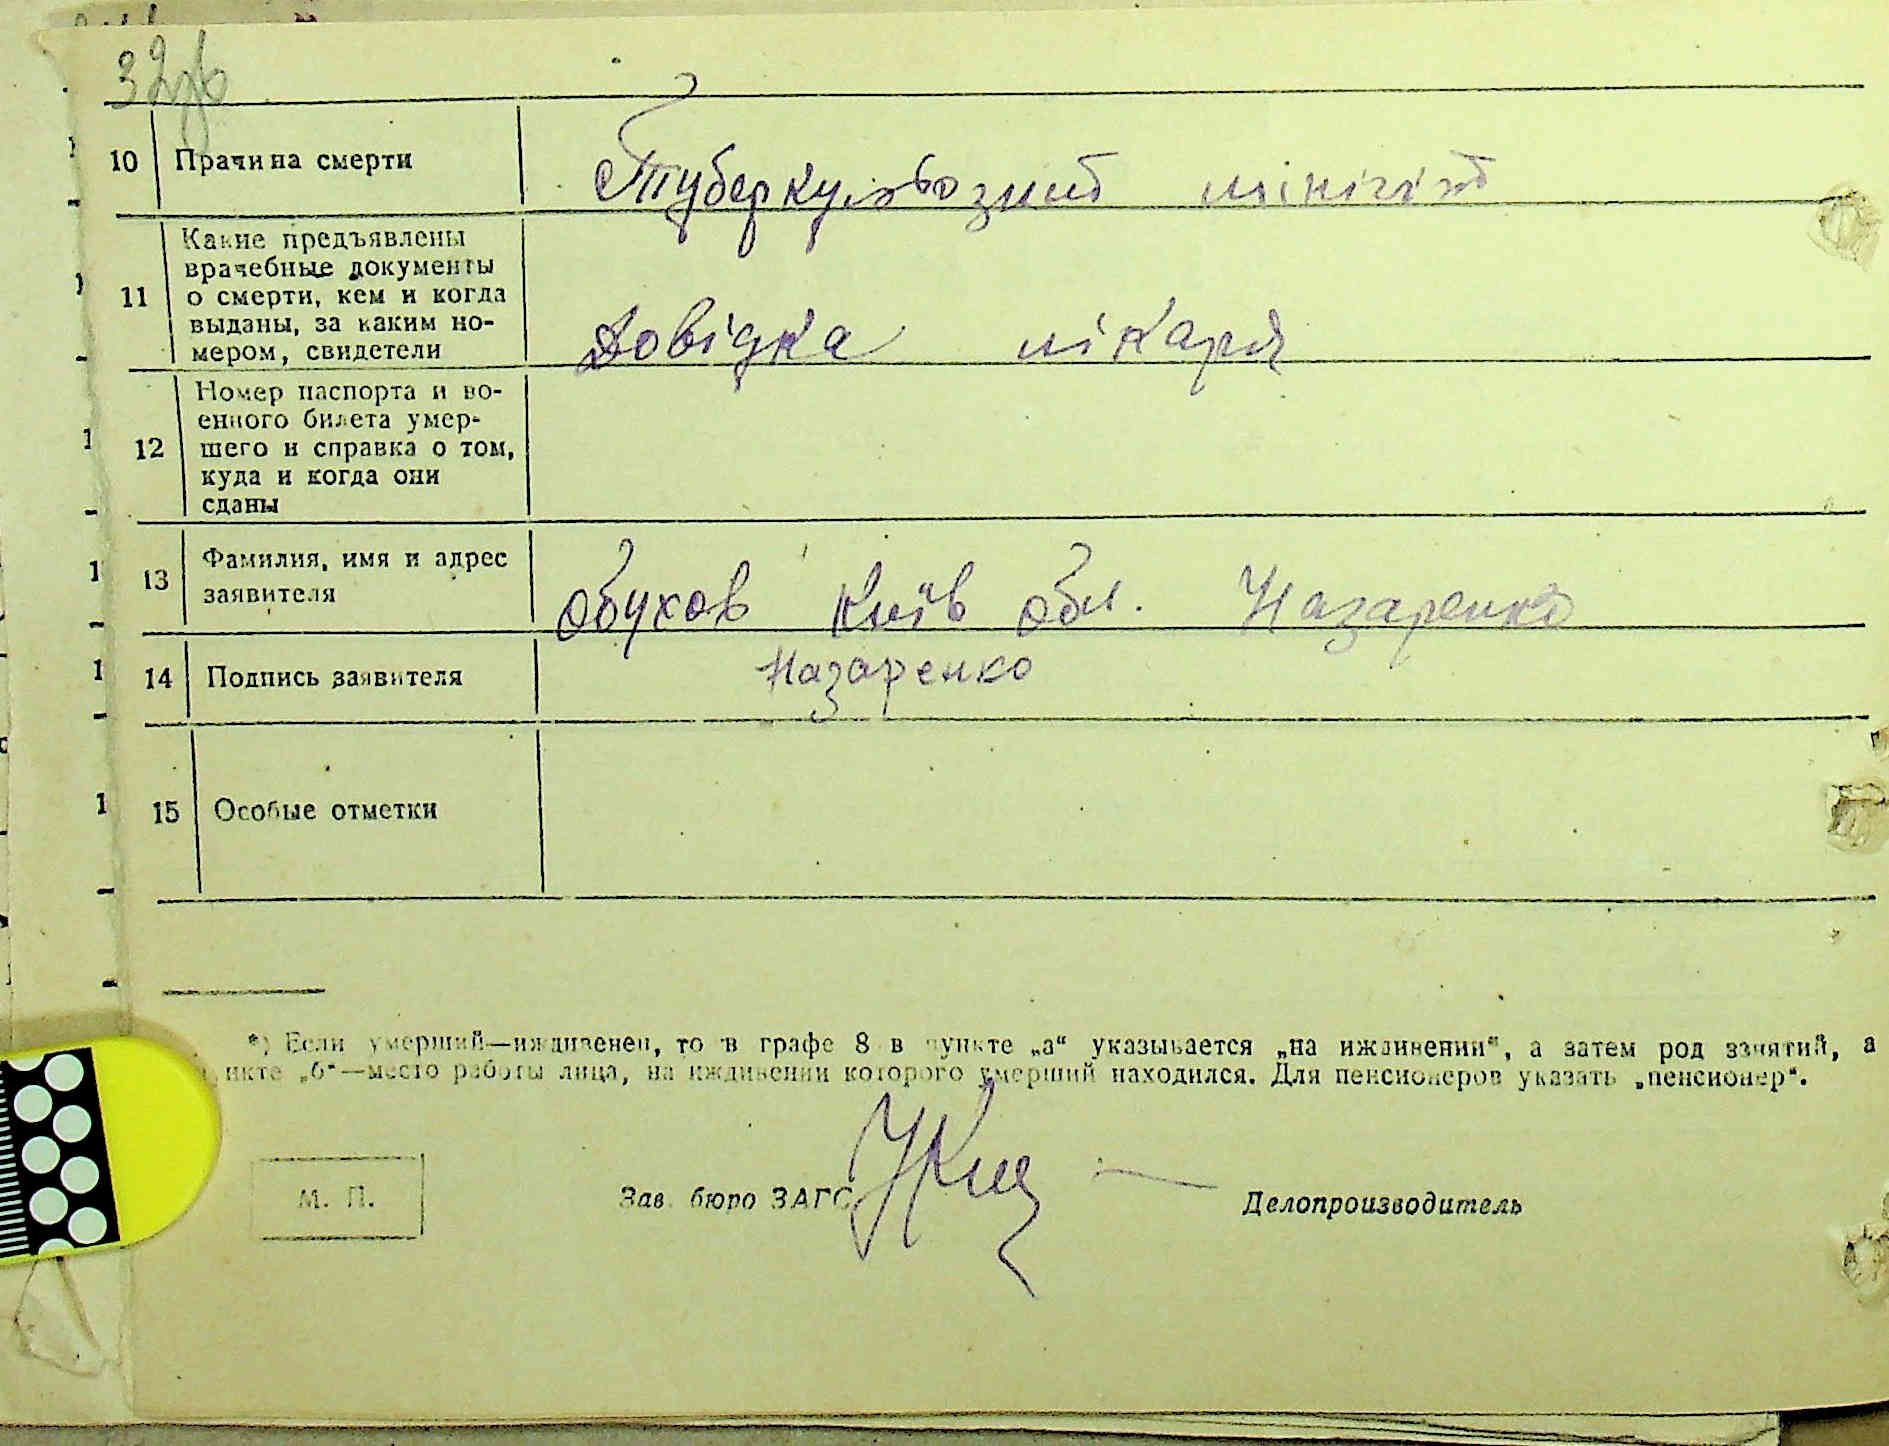 32
10 Причина смерти Туберкульозний
11 Какие предъявлены
врачебные документы
о смерти, кем и когда
выданы, за каким но-
мером, свидетели Довідка лікаря
12 Номер паспорта и во-
енного билета умер-
шего и справка о том,
куда и когда они
сданы
13 Фамилия, имя и адрес
заявителя Обухов Київ обл. Назаренко
14 Подпись заявителя Назаренко
15 Особые отметки
*) Если умерший—иждивенец, то в графе 8 в пункте „а“ указывается „на иждивении“, а затем род занятий, а
пункте „б“—место работы лица, на иждивении которого умерший находился. Для пенсионеров указать „пенсионер“.
М. П. Зав. бюро ЗАГС Делопроизводитель